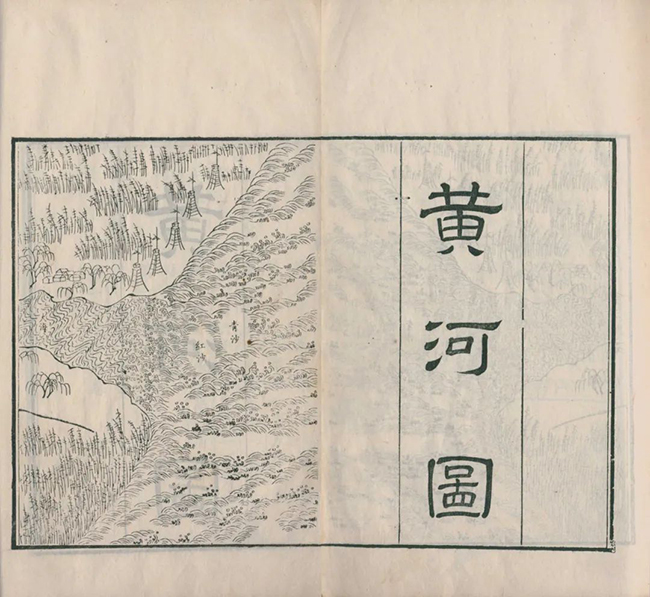 黄河圖
青沙
紅沙